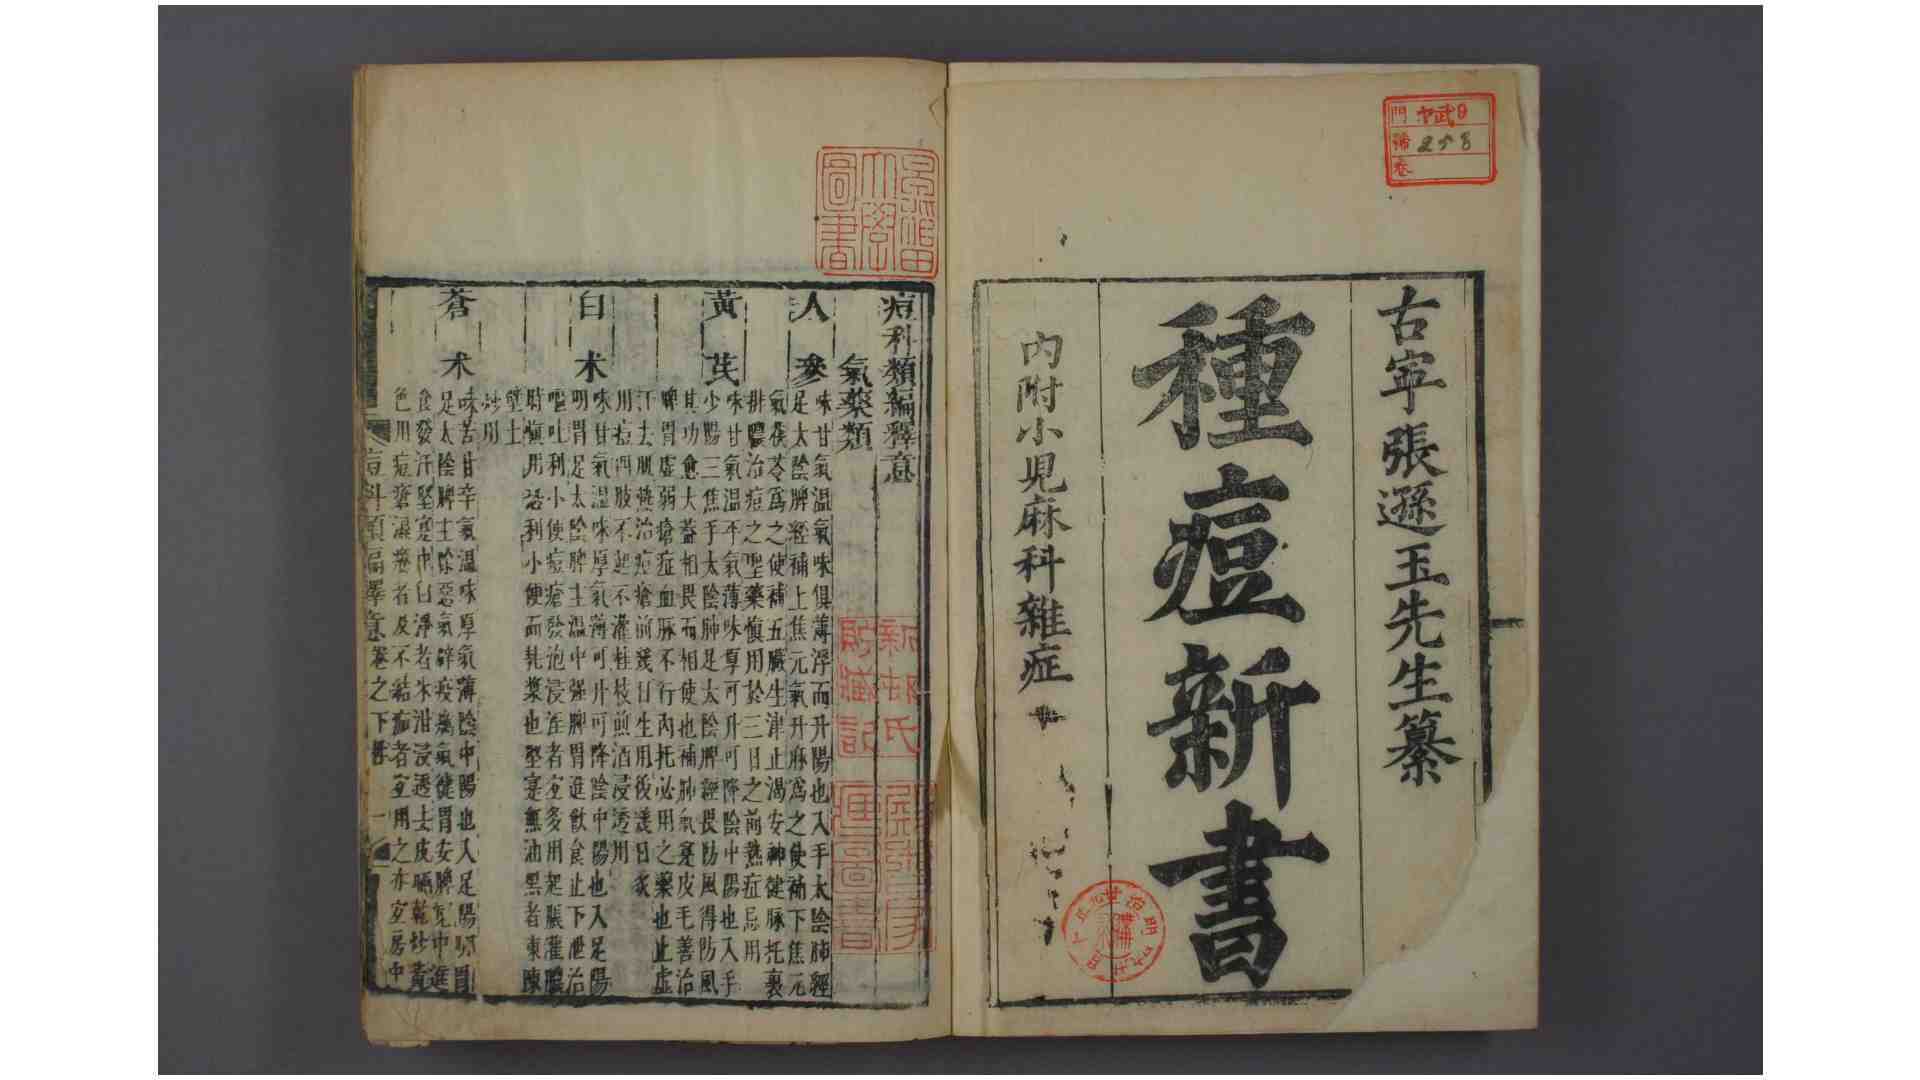 古寧張遜玉先生纂
種痘新書
內附小兒麻科雜症
門 ヤ武9
號 258
卷
早稻田大學圖書
痘科類編釋意
氣藥類
人參
味甘氣溫氣味俱薄浮而升陽也入手太陰肺經
足太陰脾經補上焦元氣升麻為之使補下焦元
氣茯苓為之使補五臟生津止渴安神健脉托裏
排膿治痘之聖藥慎用於三日之前熱症忌用
黃芪
味甘氣溫平氣薄味厚可升可降陰中陽也入手
少陽三焦手太陰肺足太陰脾經畏防風得防風
其功愈大蓋相畏而相使也補肺氣寔皮毛善治
脾胃虛弱瘡症血脉不行內托必用之藥也止虛
汗去肌熱治痘瘡前幾日生用後幾日炙
用痘四肢不起不灌桂枝煎酒浸透用
白朮
味甘氣溫味厚氣薄可升可降陰中陽也入足陽
明胃足太陰脾主溫中強脾胃進飲食止下泄治
嘔吐利小便痘瘡發泡浸淫者宜多用起脹灌膿
時慎用恐利小便而耗漿也堅寔無油黑者東陳
壁土
炒用
蒼朮
味苦甘辛氣溫味厚氣薄陰中陽也入足陽明胃
足太陰脾主除惡氣辟疫癘氣健胃安脾寬中進
食發汗堅寔中白淨者米泔浸透去皮晒乾炒黃
色用痘瘡濕爛者及不結痂者宜用之亦宜房中
痘科類編釋意 卷之下冊 一